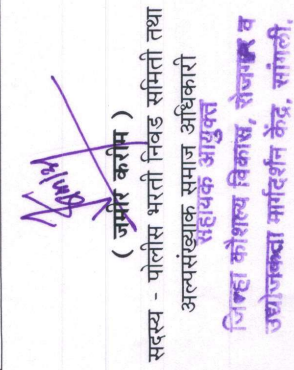 ( जमीर करीम )
सदस्य - पोलीस भरती निवड समिती तथा
अल्पसंख्याक समाज अधिकारी
सहाय्यक आयुक्त
जिल्हा कौशल्य विकास, रोजगार व
उद्योजकता मार्गदर्शन केंद्र, सांगली.